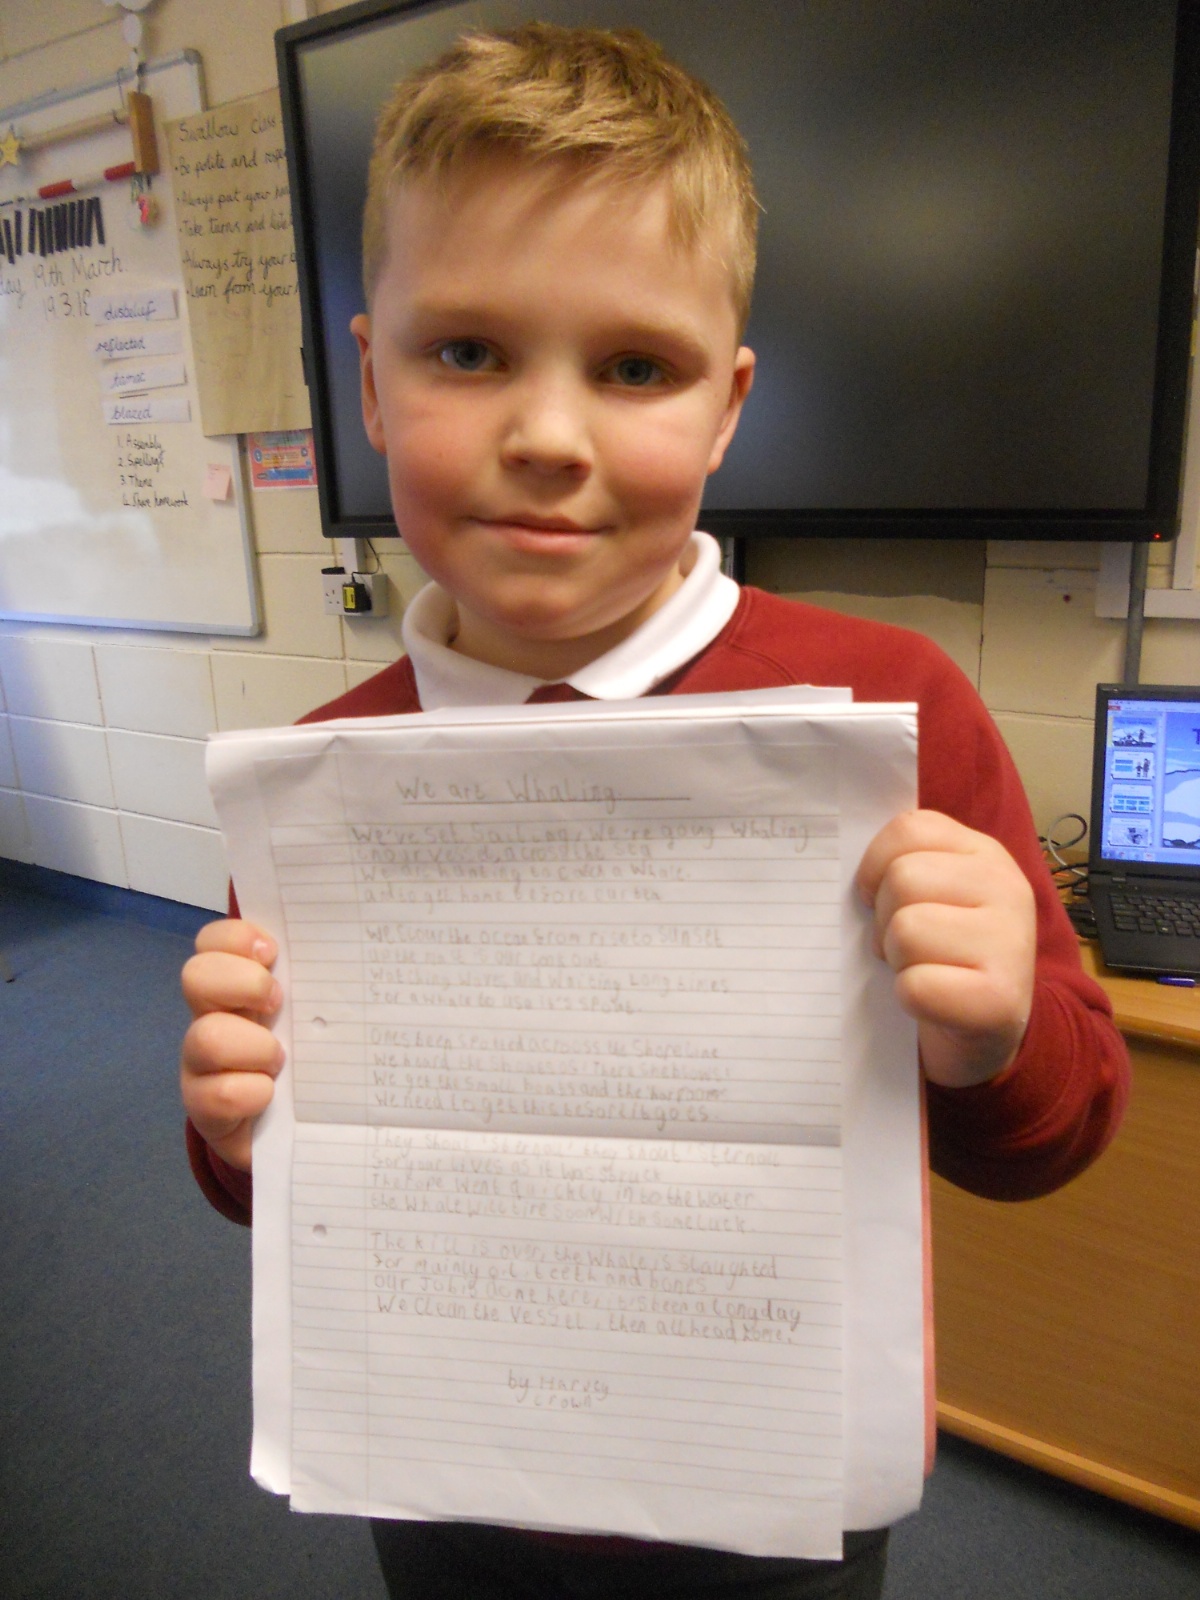 Swallow class
• Be polite and
• Always put your
• Take turns and
• Always try your
• Learn from your
19th March
19.3.18
disbelief
reflected
blazed
1. Assembly
2. Spellings
3. Theme
4. Share homework
We are Whaling
We've set Sailing, We're going Whaling
In our vessel, across the Sea
We are hunting to catch a Whale.
and to get home before our tea
We scour the ocean from rise to Sunset
is our Look out
Watching Waves and Waiting Long times
For a whale to use it's spout.
One's been spotted across the Shoreline
We heard the Shouts of: There She blows!
We get the Small boats and the harpoons
We need to get this before it goes.
They Shout 'Sternall' they Shout 'Sternall
for your Lives as it was Struck
The rope went quickly in to the Water
the Whale Will tire Soon With Some Luck.
The kill is over, the Whale is Slaughted
For mainly oil, teeth and bones
Our Job is done here, it's been a Long day
We Clean the Vessel, then all head home.
by